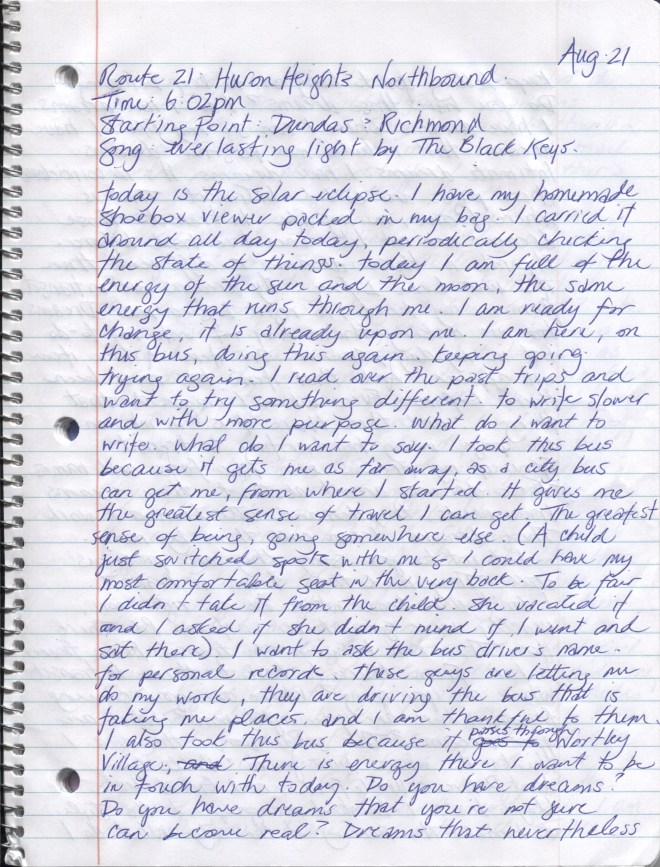 Aug. 21
Route 21: Huron Heights Northbound.
Time: 6:02pm
Starting Point: Dundas & Richmond
Song: Everlasting light by The Black Keys.
today is the solar eclipse. I have my homemade
shoebox viewer packed in my bag. I carried it
around all day today, periodically checking
the state of things. today I am full of the
energy of the sun and the moon, the same
energy that runs through me. I am ready for
change, it is already upon me. I am here, on
this bus, doing this again. Keeping going.
trying again. I read over the past trips and
want to try something different. to write slower
and with more purpose. What do I want to
write. What do I want to say. I took this bus
because it gets me as far away, as a city bus
can get me, from where I started. It gives me
the greatest sense of travel I can get. The greatest
sense of being, going somewhere else. (A child
just switched spots with me so I could have my
most comfortable seat in the very back. To be fair
I didn't take it from the child. She vacated it
and I asked if she didn't mind if I went and
sat there) I want to ask the bus driver's name.
for personal records. these guys are letting me
do my work, they are driving the bus that is
taking me places, and I am thankful to them.
I also took this bus because it goes to passes through Wortley
Village, and There is energy there I want to be
in touch with today. Do you have dreams?
Do you have dreams that you're not sure
can become real? Dreams that nevertheless